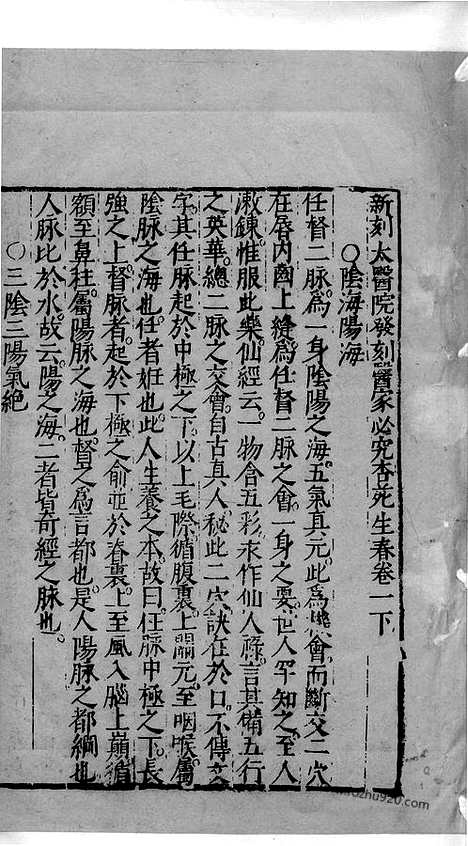 新刻太醫院發刻醫家必究杏苑生春卷一下
○陰海陽海
任督二脉為一身陰陽之海五氣真元此為機會而斷交二穴
在唇内齒上縫為任督二脉之會一身之要世人罕知之至人
漱鍊惟服此藥仙經云一物含五彩永作仙人祿言其備五行
之英華總二脉之交會自古真人秘此二穴訣在於口不傳文
字其任脉起於中極之下以上毛際循腹裏上關元至咽喉屬
陰脉之海也任者妊也此人生養之本故曰任脉中極之下長
強之上督脉者起於下極之俞並於脊裏上至風入腦上巔循
額至鼻柱屬陽脉之海也督之為言都也是人陽脉之都綱也
人脉比於水故云陽之海二者皆奇經之脉也
○三陰三陽氣絶
zhu920.com